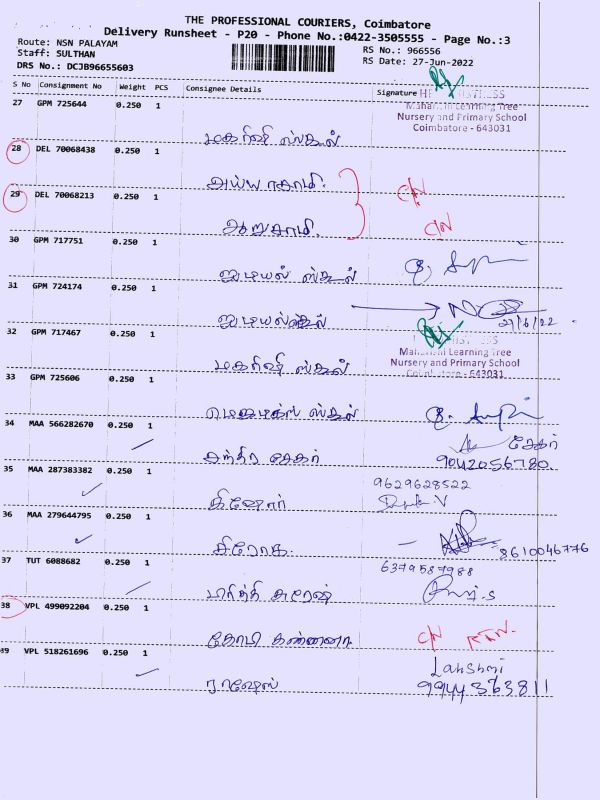 THE PROFESSIONAL COURIERS, Coimbatore
Delivery Runsheet - P20 - Phone No.:0422-3505555 - Page No.:3
Route: NSN PALAYAM
RS No.: 966556
Staff: SULTHAN
RS Date: 27-Jun-2022
DRS No.: DCJB96655603
S No Consignment No Weight PCS Consignee Details Signature
27 GPM 725644 0.250 1
Maharishi Learning Tree
Nursery and Primary School
Coimbatore - 643031
மகரிஷி ஸ்கூல்
28 DEL 70068438 0.250 1
அய்யாசாமி. C/N
29 DEL 70068213 0.250 1
ஆறுசாமி. C/N
30 GPM 717751 0.250 1
ஸ்கூல்
31 GPM 724174 0.250 1
27/6/22
32 GPM 717467 0.250 1
Maharishi Learning Tree
Nursery and Primary School
Coimbatore - 643031
மகரிஷி ஸ்கூல்
33 GPM 725606 0.250 1
ஸ்கூல்
34 MAA 566282670 0.250 1
சேகர்
சந்திர சேகர் 9042056780
35 MAA 287383382 0.250 1
9629628522
கிஷோர்
36 MAA 279644795 0.250 1
8610046776
37 TUT 6088682 0.250 1
6379587988
38 VPL 499092204 0.250 1
கோபி கண்ணன் C/N RTN.
39 VPL 518261696 0.250 1
Lakshmi
ராஜேஸ் 9944363811